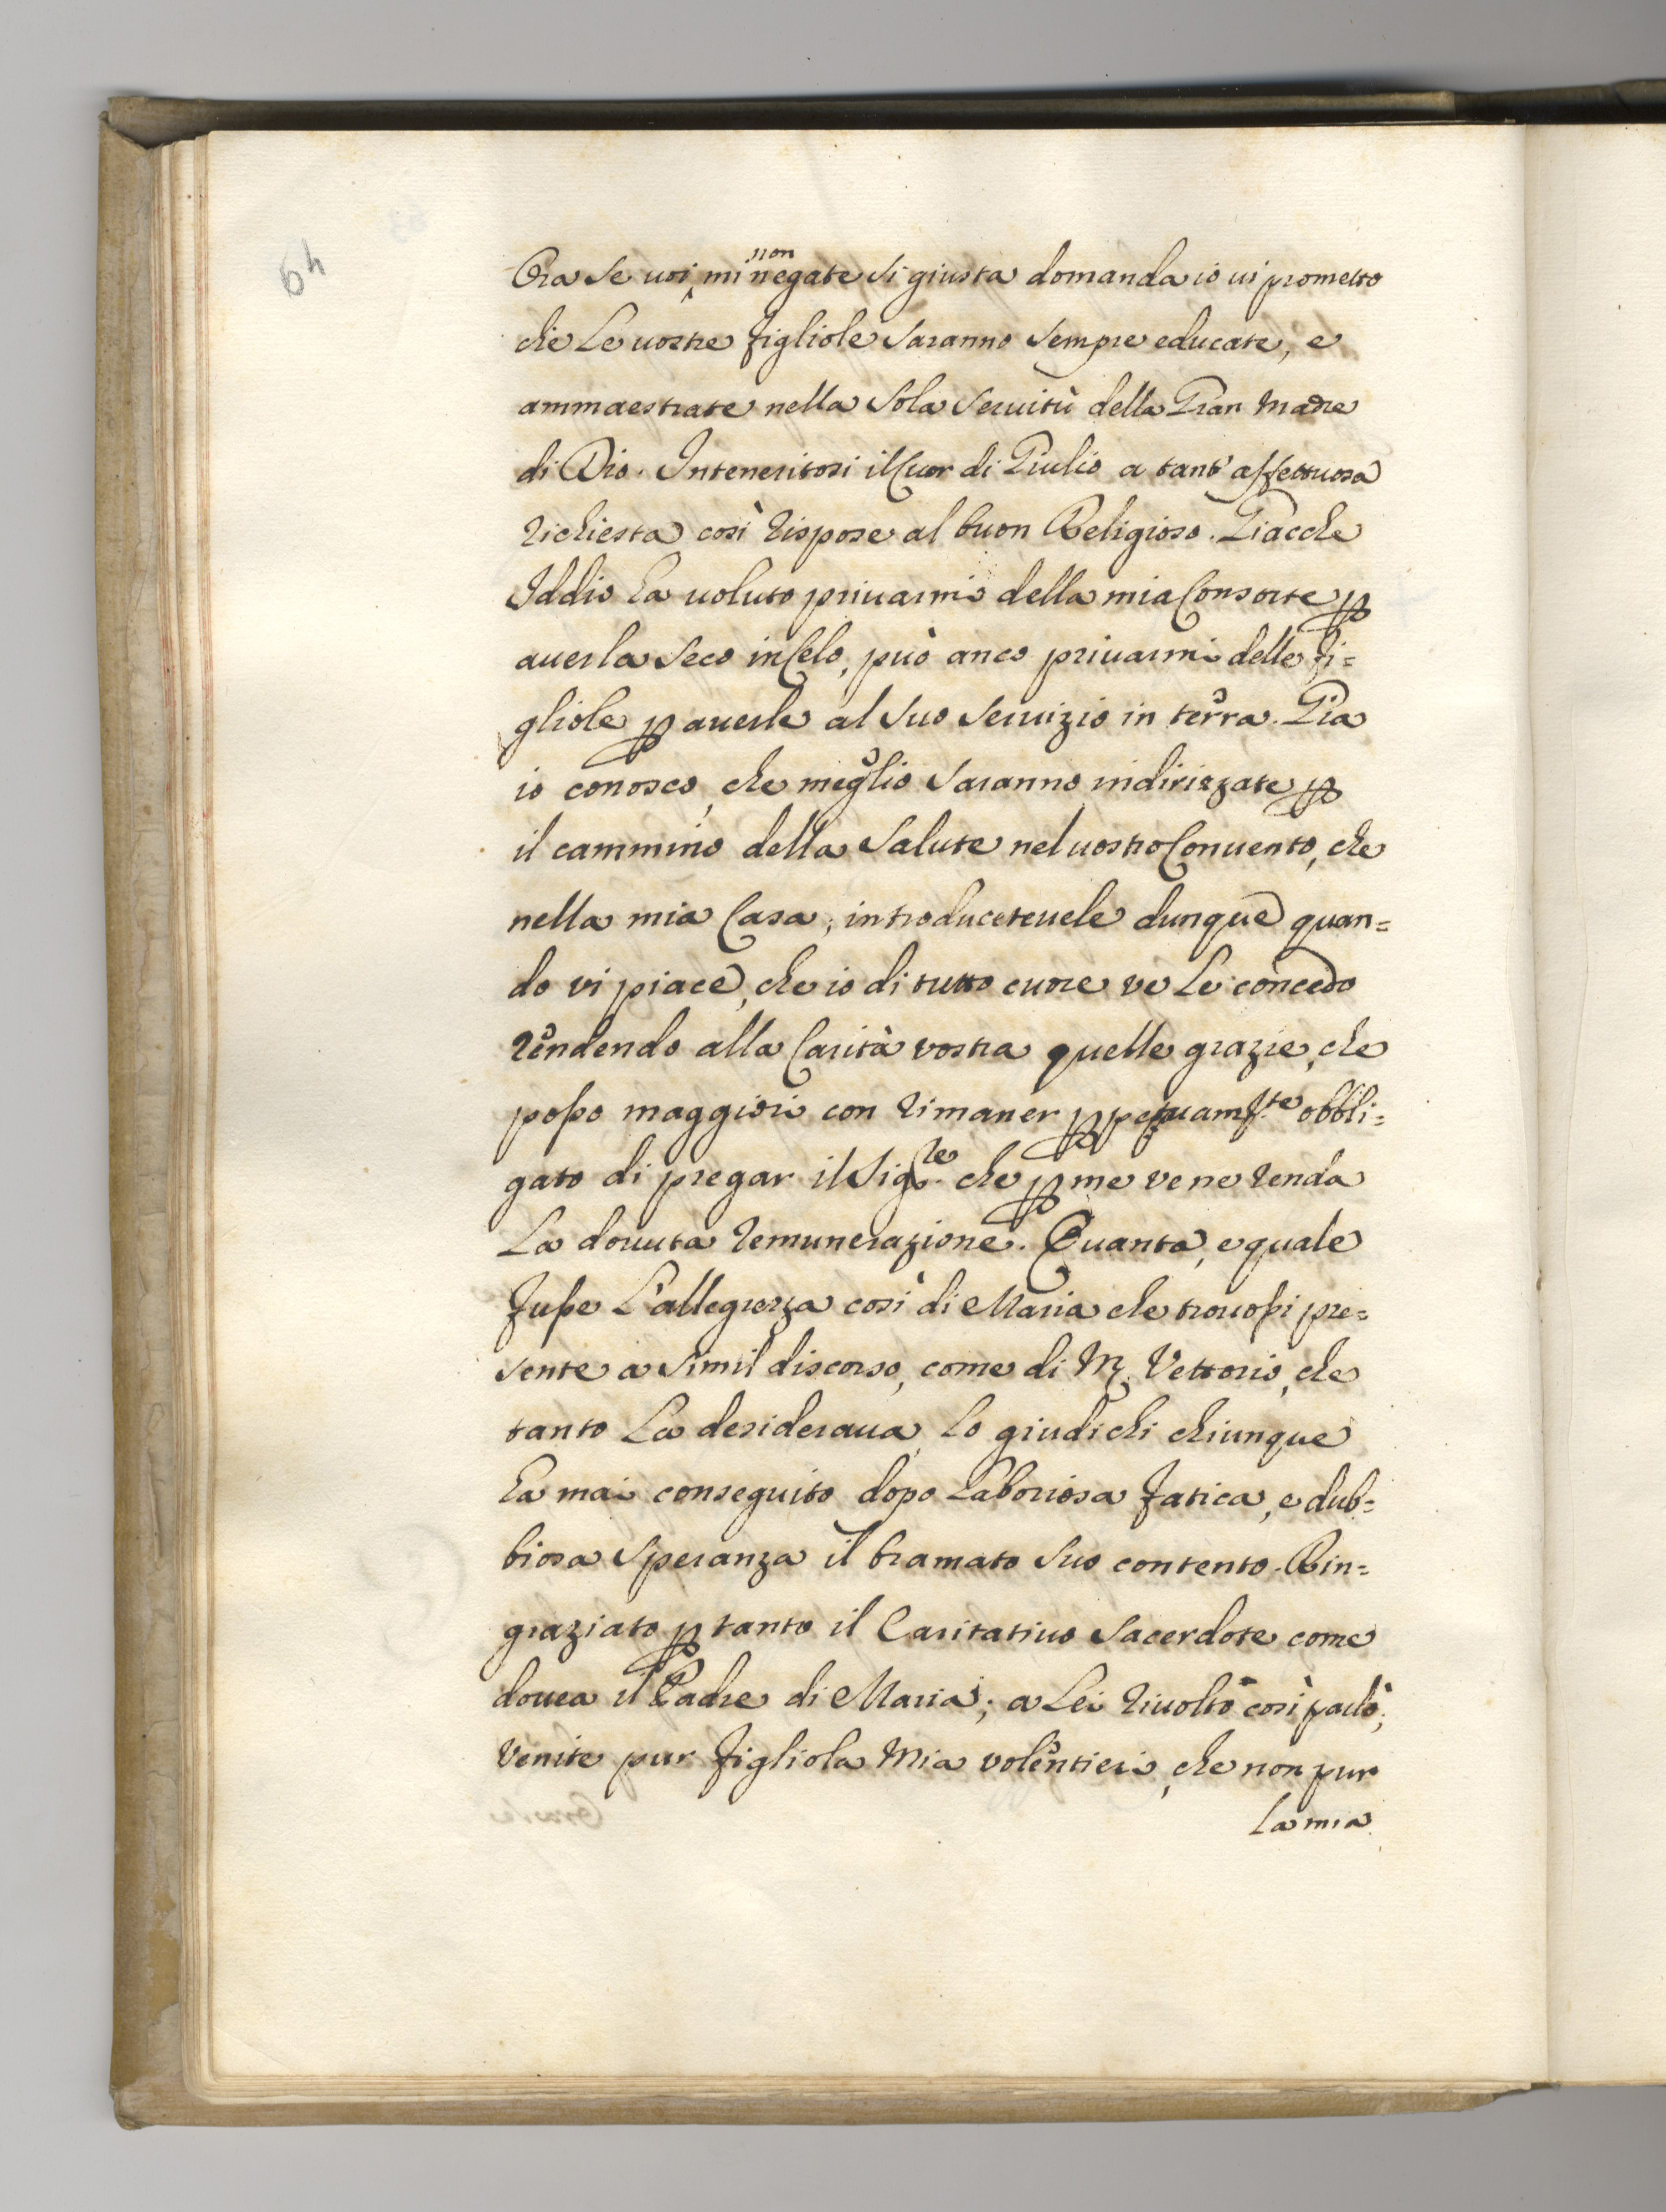 64
Ora se uoi, mi non negate si giusta domanda io ui prometto
che Le uostre figliole saranno sempre educate, e
ammaestrate nella sola seruitù della Gran Madre
di Dio. Inteneritosi il Cuor di Giulio a tant' affettuosa
richiesta così rispose al buon Religioso. Giacche
Iddio ha uoluto priuarmi della mia Consorte p
auerla seco in Celo, può anco priuarmi delle fi=
gliole p auerle al suo seruizio in terra. Gia
io conosco, che meglio saranno indirizzate p
il cammino della salute nel uostro Conuento, che
nella mia Casa; introducetevele dunque quan=
do vi piace, che io di tutto cuore ve Le concedo
rendendo alla Carità vostra quelle grazie, che
posso maggiori con rimaner ppetuamte obbli=
gato di pregar il Sigre. che p me ve ne renda
La douuta remunerazione. Quanta, e quale
fusse L'allegrezza così di Maria che trouossi pre=
sente a simil discorso, come di M. Vettorio, che
tanto La desideraua, Lo giudichi chiunque
ha mai conseguito dopo Laboriosa fatica, e dub=
biosa speranza il bramato suo contento. Rin=
graziato p tanto il Caritatiuo Sacerdote come
douea il Padre di Maria; a Lei riuolto così parlò;
Venite pur figliola Mia volentieri, che non pur
La mia